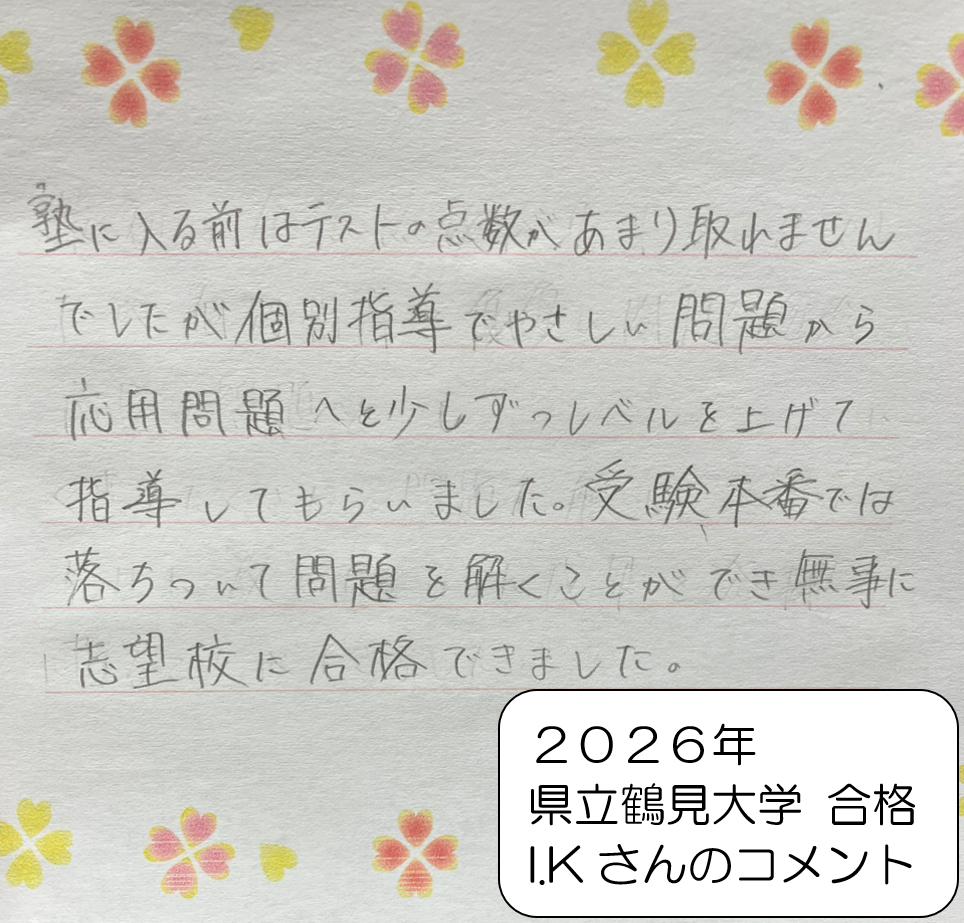 塾に入る前はテストの点数があまり取れません
でしたが個別指導でやさしい問題から
応用問題へと少しずつレベルを上げて
指導してもらいました。受験本番では
落ちついて問題を解くことができ無事に
志望校に合格できました。
２０２６年
県立鶴見大学 合格
I.Kさんのコメント